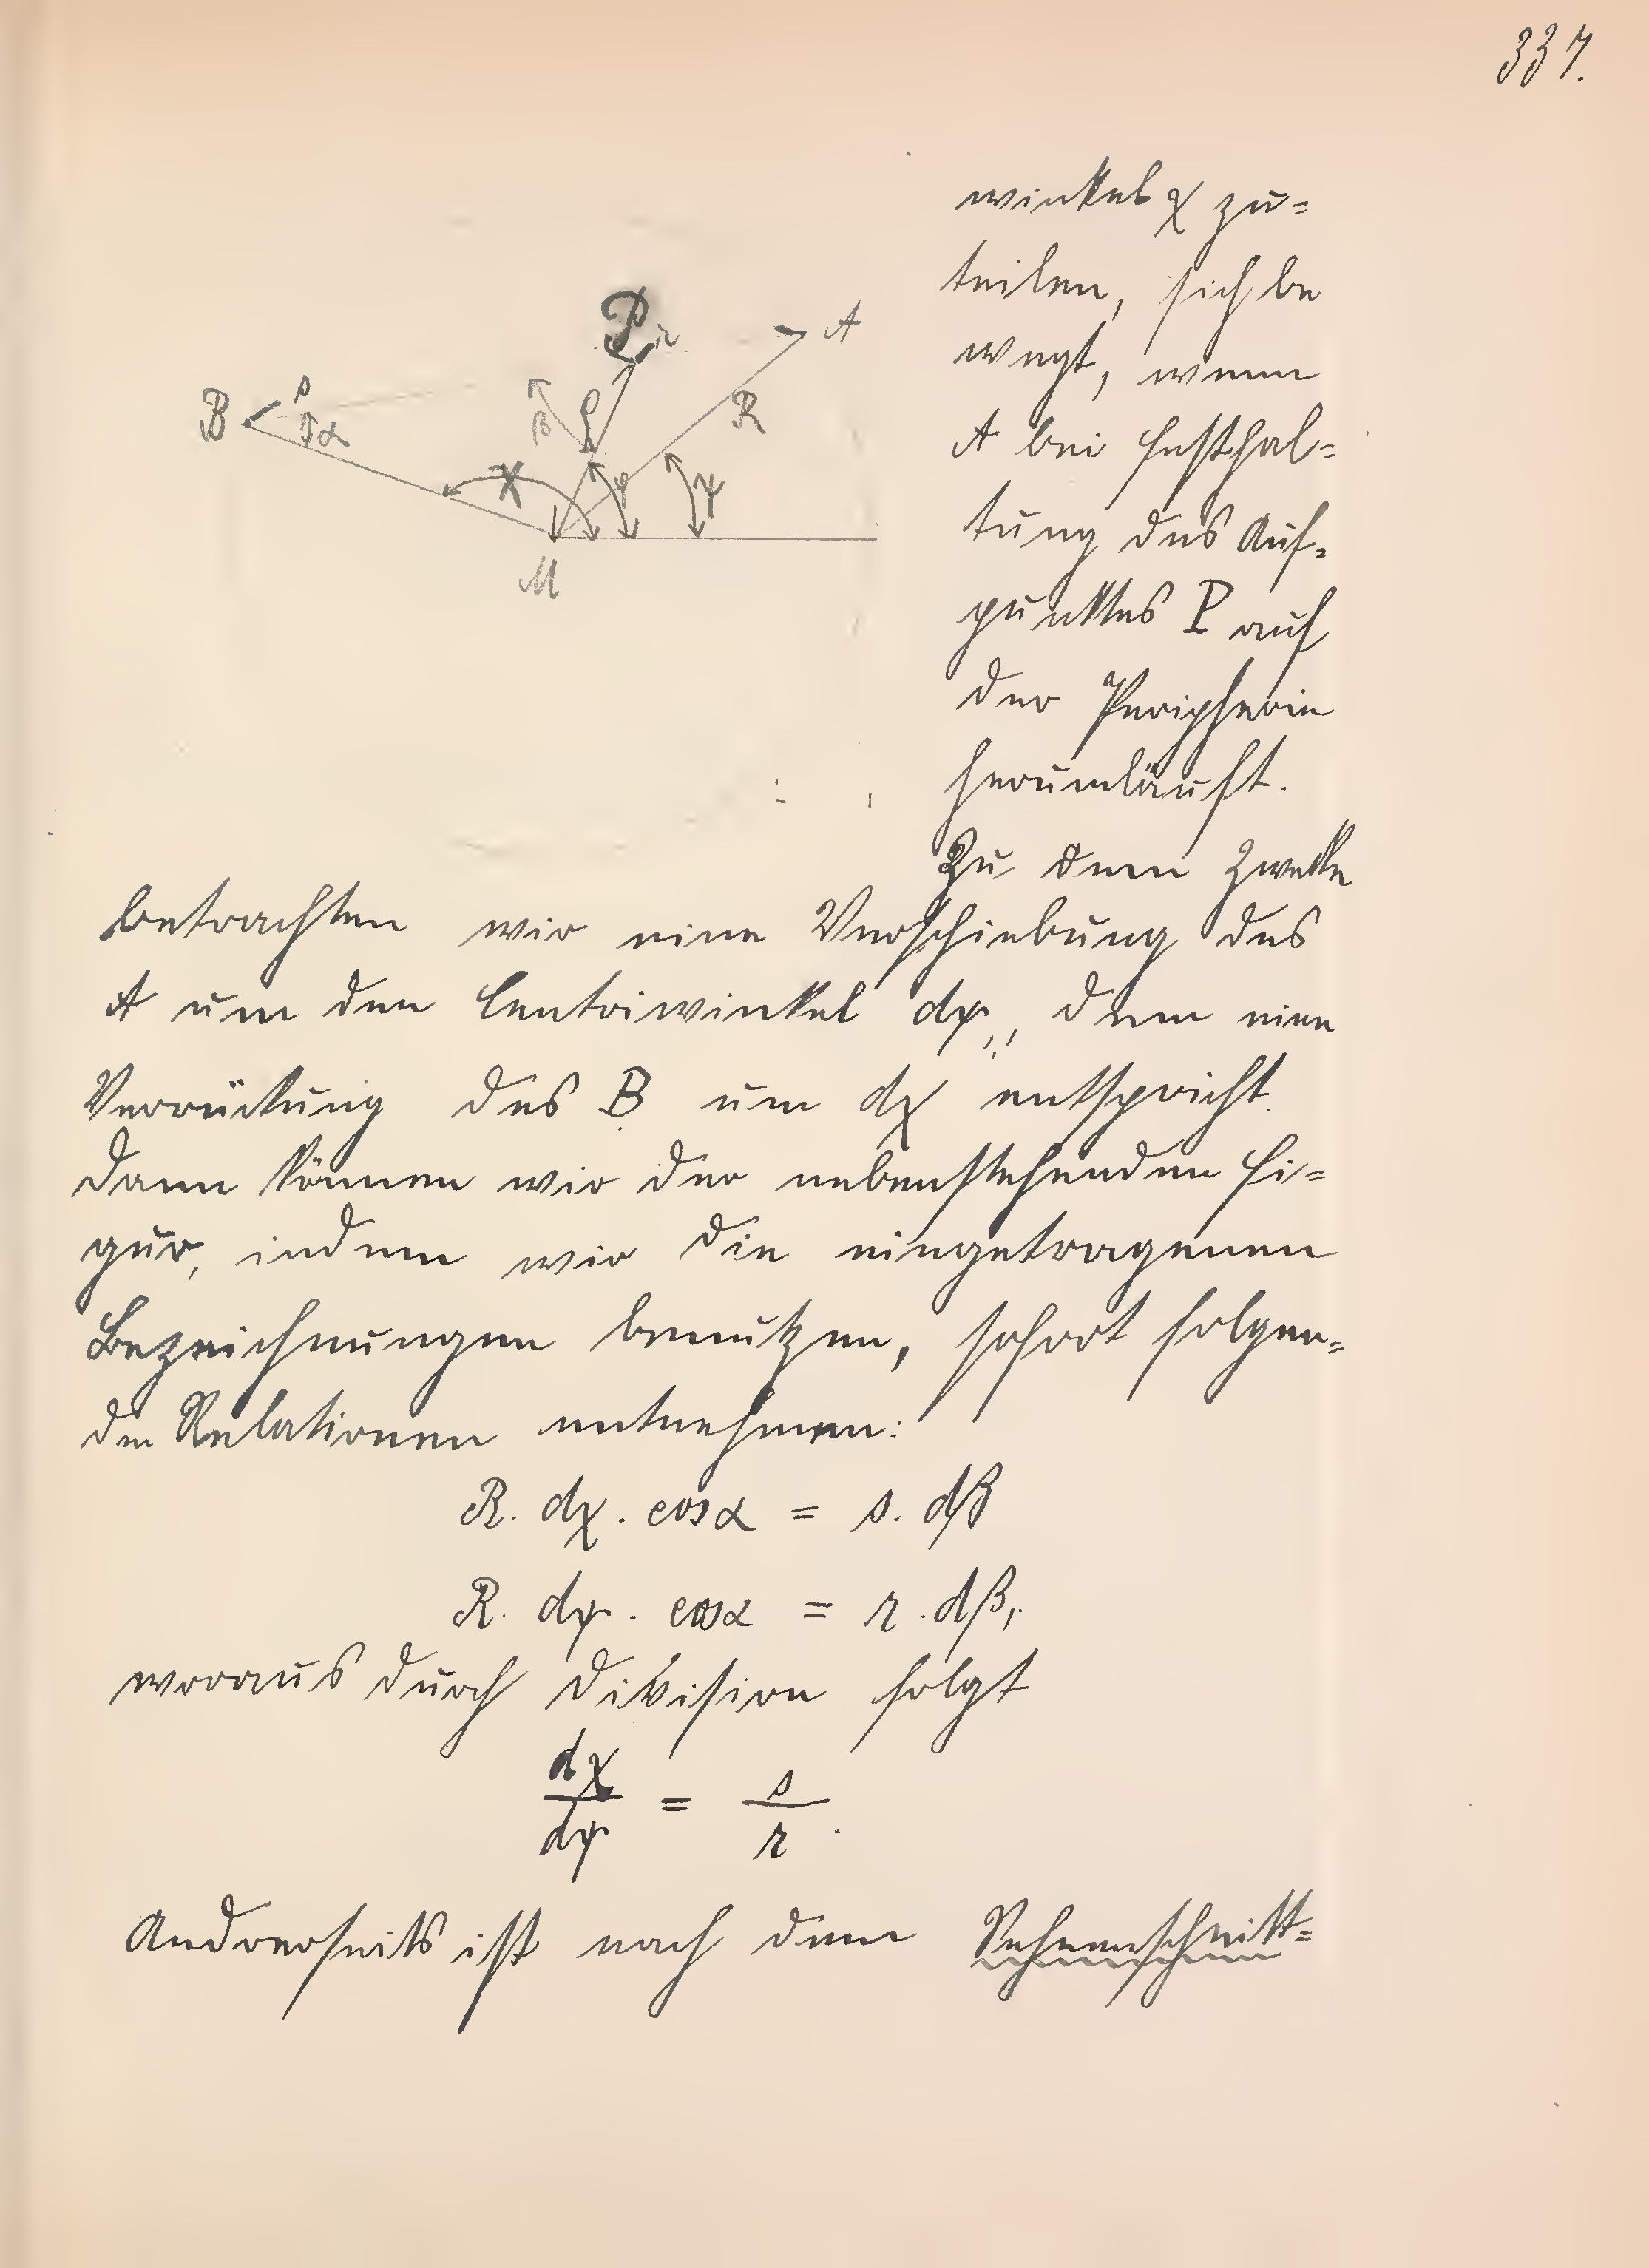 337.
winkel χ zu=
teilen, sich be
wegt, wenn
A bei Festhal=
tung des Auf=
punktes P auf
der Peripherie
herumläuft.
Zu dem Zwecke
betrachten wir eine Verschiebung des
A um den Centriwinkel dψ, dem eine
Verrückung des B um dχ entspricht.
Dann können wir der nebenstehenden Fi=
gur, indem wir die eingetragenen
Bezeichnungen benutzen, sofort folgen=
den Relationen entnehmen:
R. dχ. cosα = s. dβ
R. dψ. cosα = r. dβ,
woraus durch Division folgt
dχ/dψ = s/r.
Andrerseits ist nach dem Sehnenschnitt=
P r A
B s α β ρ R
χ φ ψ
M